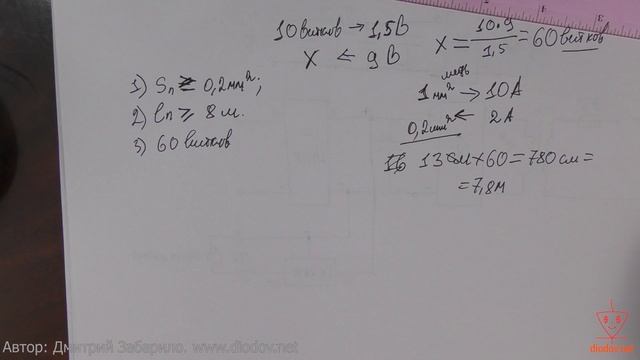 10 витков → 1,5В
X ← 9В
X = 10·9 / 1,5 = 60 витков
1) Sп ≥ 0,2мм²;
2) lп ≥ 8 м.
3) 60 витков
медь
1мм² → 10А
0,2мм² ← 2А
13 см × 60 = 780 см =
= 7,8м
Автор: Дмитрий Забарило. www.diodov.net
diodov.net